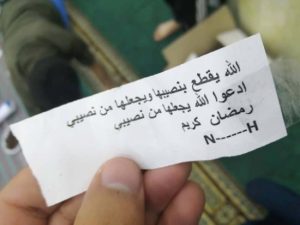 الله يقطع بنصيبها ويجعلها من نصيبي
ادعوا الله يجعلها من نصيبي
رمضان كريم
N------H